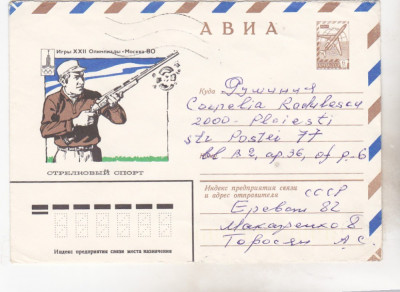 АВИА
Игры XXII Олимпиады • Москва-80
СТРЕЛКОВЫЙ СПОРТ
Куда Румыния
Radulescu
2000 - Ploiesti
str Postei 77
bl B2, ap. 36, of p-6
Индекс предприятия связи
и адрес отправителя СССР
Ереван 82
Макаренко 8
Торосян А. С.
Индекс предприятия связи места назначения